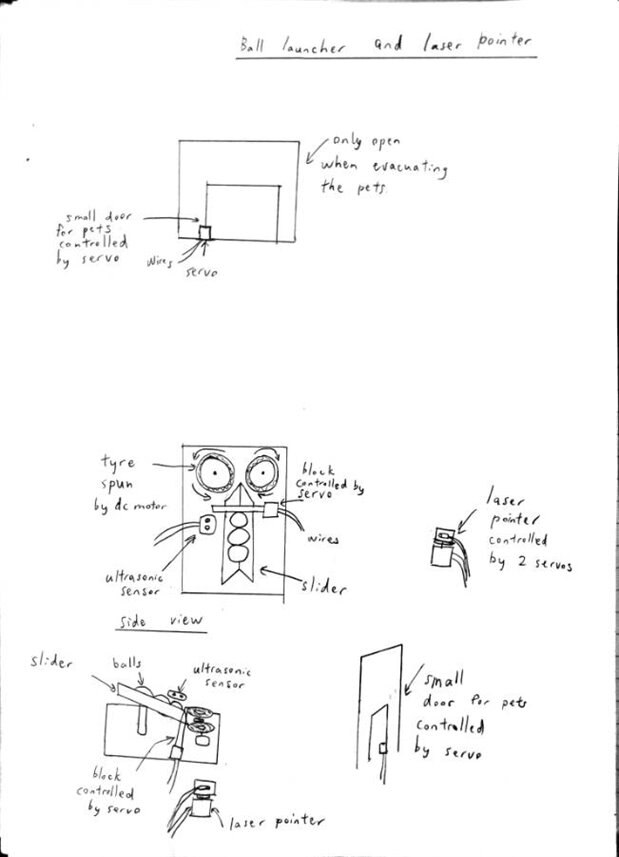 Ball launcher and laser pointer
only open
when evacuating
the pets
small door
for pets
controlled
by servo
wires
servo
tyre
spun
by dc motor
block
controlled by
servo
wires
ultrasonic
sensor
slider
laser
pointer
controlled
by 2 servos
side view
slider
balls
ultrasonic
sensor
block
controlled
by servo
laser pointer
small
door for pets
controlled
by servo